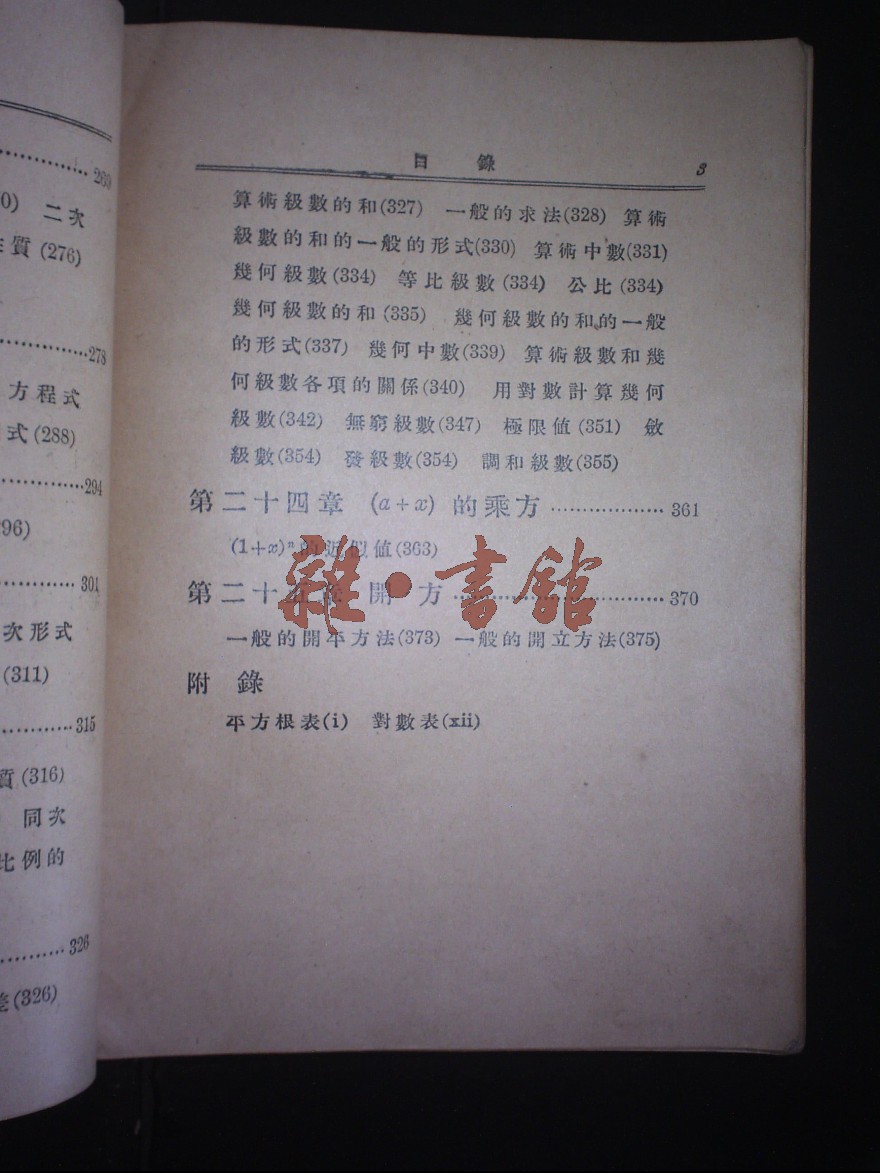 260
0) 二次
質(276)
278
方程式
式(288)
294
296)
301
次形式
(311)
315
質(316)
同次
比例的
326
差(326)
目錄 3
算術級數的和(327) 一般的求法(328) 算術
級數的和的一般的形式(330) 算術中數(331)
幾何級數(334) 等比級數(334) 公比(334)
幾何級數的和(335) 幾何級數的和的一般
的形式(337) 幾何中數(339) 算術級數和幾
何級數各項的關係(340) 用對數計算幾何
級數(342) 無窮級數(347) 極限值(351) 斂
級數(354) 發級數(354) 調和級數(355)
第二十四章 (a+x)的乘方 ………………… 361
(1+x)ⁿ的近似值(363)
第二十五章 開方 ………………………… 370
一般的開平方法(373) 一般的開立方法(375)
附錄
平方根表(i) 對數表(xii)
雜·書館